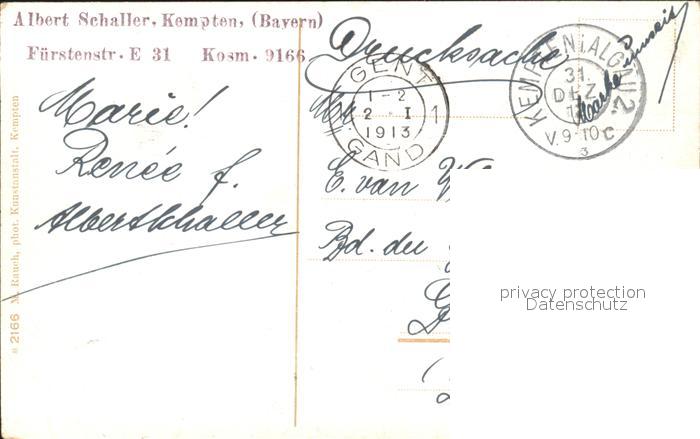 Albert Schaller, Kempten, (Bayern)
Fürstenstr. E 31 Kosm. 9166
Marie!
Renée f.
Albert Schaller
2166 M. Rauch, phot. Kunstanstalt, Kempten
Drucksache
GENT
1-2
2 I
1913
1
GAND
KEMPTEN (ALGÄU) 2.
31.
DEZ.
V. 9-10
c
3
Marke
E. van
Bd. du
privacy protection
Datenschutz